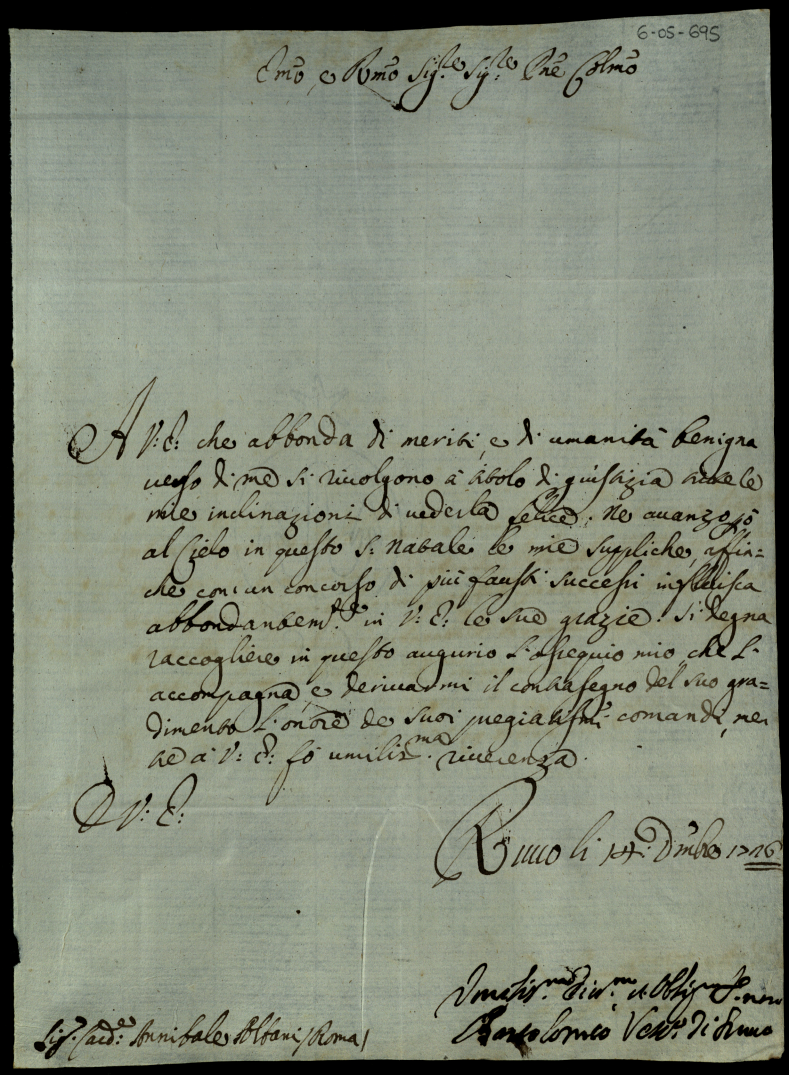 6-05-695
Emo, e Rmo Sig.re Sig.re Pne Colmo
A V: E: che abbonda di meriti, e di umanità benigna
verso di me si rivolgono à titolo di giustizia tutte le
mie inclinazioni di vederla felice. Ne avanzo
al Cielo in questo S. Natale le mie suppliche, affin=
che con un concorso di più fausti successi influisca
abbondantem.te in V: E: le sue grazie. Si degna
raccogliere in questo augurio l'ossequio mio che l'
accompagna, e derivarmi il contrasegno del suo gra=
dimento l'onore de suoi pregiatissmi comandi, men
tre à V: E: fò umilis.ma riverenza.
D V: E:
li 14 Dmbre 1726
Bartolomeo Vesc.o di
Sig.r Card.e Annibale Albani / Roma /